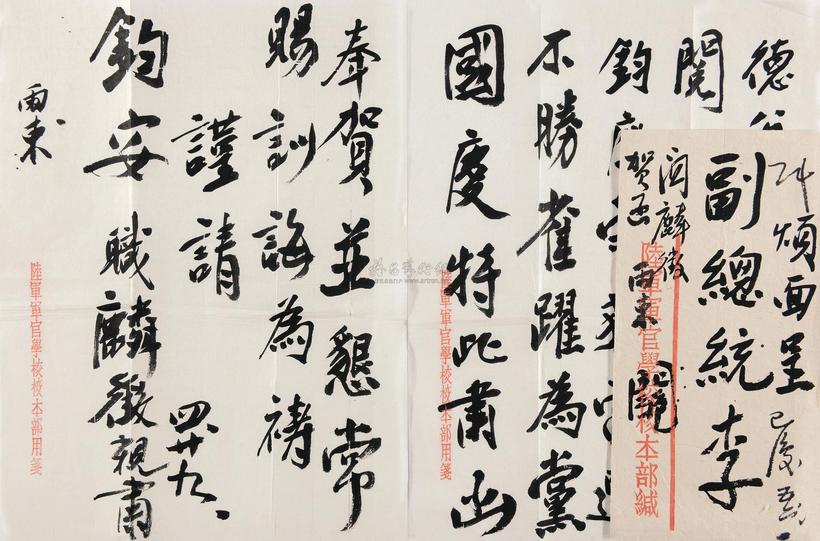 德公
閱
鈞
不勝雀躍為黨
國慶特此肅函
奉賀並懇常
賜訓誨為禱
謹請
鈞安 職麟徵親肅
四、廿九、
兩東
陸軍軍官學校校本部用箋
陸軍軍官學校校本部用箋
煩面呈
副總統李
陸軍軍官學校校本部緘
關麟徵
賀函
已覆